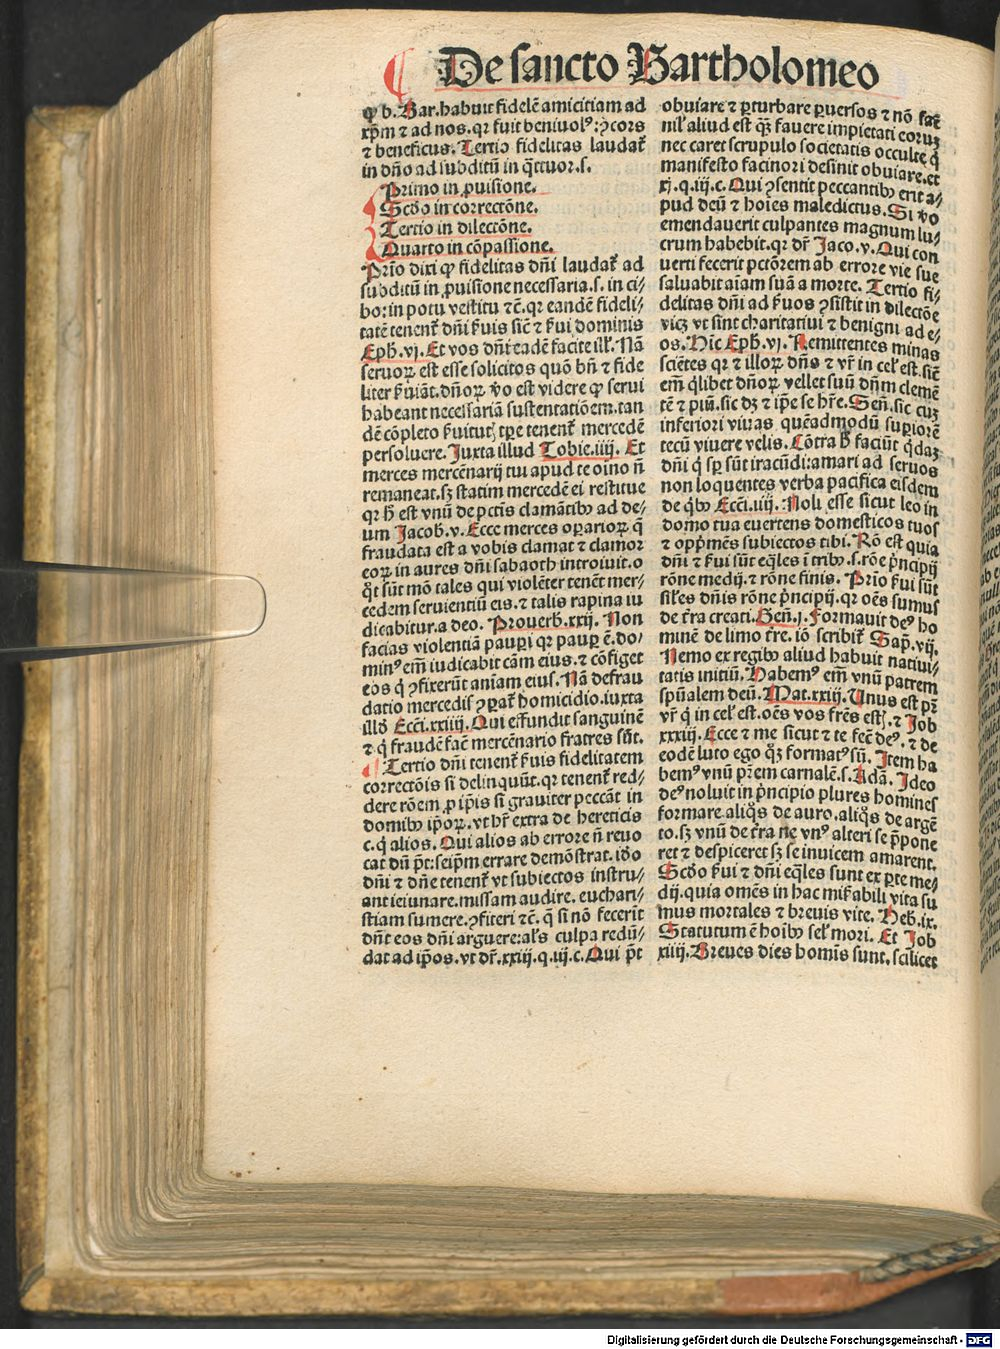 De sancto Bartholomeo
ꝙ b. Bar. habuit fidelē amicitiam ad
xp̄m ⁊ ad nos. qr fuit beniuolꝰ: ꝯcors
⁊ beneficus. Tertio fidelitas laudat̄
in dn̄o ad subditū in q̄ttuor. s.
Primo in ꝓuisione.
Scd̄o in correctōne.
Tertio in dilectōne.
Quarto in cōpassione.
Prīo dixi ꝙ fidelitas dn̄i laudat̄ ad
subditū in ꝓuisione necessaria. s. in ci⸗
bo: in potu vestitu ⁊c̄. qr eandē fideli⸗
tatē tenent̄ dn̄i ẜuis sic̄ ⁊ ẜui dominis
Eph̄. vj. Et vos dn̄i eadē facite ill̄. Nā
seruoꝝ est esse solicitos quō bn̄ ⁊ fide
liter ẜuiāt. dn̄oꝝ ꝟo est videre ꝙ serui
habeant necessariā sustentatiōem. tan
dē cōpleto ẜuitutꝭ tp̄e tenent̄ mercedē
persoluere. Juxta illud Tobie. iiij. Et
merces mercēnarij tui apud te oīno n̄
remaneat. sꝫ statim mercedē ei restitue
qr h̄ est vnū de pctīs clamātibꝰ ad de⸗
um Jacob. v. Ecce merces oꝑarioꝝ q̄
fraudata est a vobis clamat ⁊ clamor
eoꝝ in aures dn̄i sabaoth introiuit. o
q̊t sūt mō tales qui violēter tenēt mer⸗
cedem seruientiū eis. ⁊ talis rapina iu
dicabitur. a deo. Prouerb. xxij. Non
facias violentiā pauꝑi qr pauꝑ ē. do⸗
minꝰ em̄ iudicabit cām eius. ⁊ cōfiget
eos q̇ ꝯfixerūt aniam eius. Nā defrau
datio mercedis ꝯꝑat̄ homicidio. iuxta
illd̄ Ecci. xxiiij. Qui effundit sanguinē
⁊ q̇ fraudē fac̄ mercēnario fratres sūt.
Tertio dn̄i tenent̄ ẜuis fidelitatem
correctōis si delinquūt. qr tenent̄ red⸗
dere rōem ꝓ ip̄is si grauiter peccāt in
domibꝰ ip̄oꝝ. vt hr̄ extra de hereticis
c. q̇ alios. Qui alios ab errore n̄ reuo
cat dū pōt: seip̄m errare demōstrat. iđo
dn̄i ⁊ dn̄e tenent̄ vt subiectos instru⸗
ant ieiunare. missam audire. euchari⸗
stiam sumere. ꝯfiteri ⁊c̄. q̇ si nō fecerit
dn̄t eos dn̄i arguere: al̄s culpa redū⸗
dat ad ip̄os. vt dr̄. xxiij. q. iij. c. Qui pōt
obuiare ⁊ ꝑturbare ꝑuersos ⁊ nō fac̄
nil̄ aliud est q̄ꝫ fauere impietati eoruꝫ
nec caret scrupulo societatis occulte q̇
manifesto facinori desinit obuiare. et
xj. q. iij. c. Qui ꝯsentit peccantibꝰ erit a⸗
pud deū ⁊ hoīes maledictus. Si ꝟo
emendauerit culpantes magnum lu⸗
crum habebit. qr dr̄ Jaco. v. Qui con
uerti fecerit pctōrem ab errore vie sue
saluabit aiam suā a morte. Tertio fi⸗
delitas dn̄i ad ẜuos ꝯsistit in dilectōe
vicꝫ vt sint charitatiui ⁊ benigni ad e⸗
os. Hic Eph̄. vj. Remittentes minas
sciētes qr ⁊ illoꝝ dn̄s ⁊ vr̄ in cel̄ est. sic̄
em̄ q̇libet dn̄oꝝ vellet suū dn̄m clemē
tē ⁊ piū. sic dꝫ ⁊ ip̄e se hr̄e. Sen̄. sic cuꝫ
inferiori viuas quēadmodū suꝑiorē
tecū viuere velis. Cōtra h̄ faciūt q̇daꝫ
dn̄i q̇ sꝑ sūt iracūdi: amari ad seruos
non loquentes verba pacifica eisdem
de q̇bꝰ Ecci. iiij. Noli esse sicut leo in
domo tua euertens domesticos tuos
⁊ opp̄mēs subiectos tibi. Rō est quia
dn̄i ⁊ ẜui sūt eq̄les ī tribꝰ. s. rōe p̄ncipij
rōne medij. ⁊ rōne finis. Prīo ẜui sūt
sil̄es dn̄is rōne p̄ncipij. qr oēs sumus
de t̄ra creati. Gen̄. j. Formauit deꝰ ho
minē de limo t̄re. iō scribit̄ Sap̄. vij.
Nemo ex regibꝰ aliud habuit natiui⸗
tatis initiū. Habemꝰ em̄ vnū patrem
spūalem deū. Mat. xxiij. Unus est pr̄
vr̄ q̇ in cel̄ est. oēs vos fr̄es estꝭ. ⁊ Job
xxxiij. Ecce ⁊ me sicut ⁊ te fec̄ deꝰ. ⁊ de
eodē luto ego qꝫ formatꝰ sū. Item ha
bemꝰ vnū pr̄em carnalē. s. Adā. Ideo
deꝰ noluit in p̄ncipio plures homines
formare. aliq̊s de auro. aliq̊s de argē
to. sꝫ vnū de t̄ra ne vnꝰ alteri se p̄pone
ret ⁊ despiceret sꝫ se inuicem amarent.
Scd̄o ẜui ⁊ dn̄i eq̄les sunt ex ꝑte me⸗
dij. quia omēs in hac mir̄abili vita su
mus mortales ⁊ breuis vite. Heb. ix.
Statutum ē hoībꝰ sel̄ mori. Et Job
xiiij. Breues dies homīs sunt. scilicet
Digitalisierung gefördert durch die Deutsche Forschungsgemeinschaft - DFG